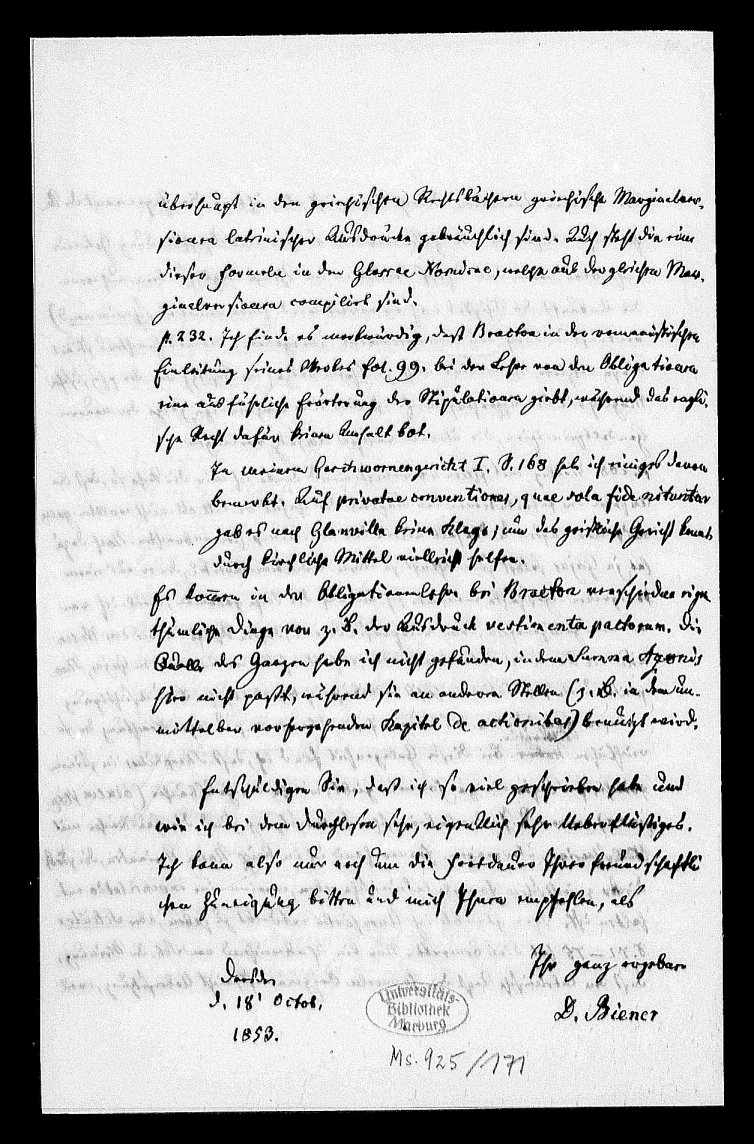 überhaupt in den griechischen Rechtsbüchern griechische Marginalver-
sionen lateinischer Ausdrücke gebräuchlich sind. Auch steht die eine
dieser Formeln in den Glossae Nomicae, welche aus dergleichen Mar-
ginalversionen compilirt sind.
p. 232. Ich finde es merkwürdig, daß Bracton in der romanistischen
Einleitung seines Werkes fol. 99. bei der Lehre von den Obligationen
eine ausführliche Erörterung der Stipulationen giebt, während das engli-
sche Recht dafür keinen Anhalt bot.
In meinem Geschwornengericht I. S. 168 habe ich einiges davon
bemerkt. Auf privatae conventiones, quae sola fide nituntur
gab es nach Glanvilla keine Klage, nur das geistliche Gericht konnte
durch kirchliche Mittel vielleicht helfen.
Es kommen in der Obligationenlehre bei Bracton verschiedene eigen
thümliche Dinge vor z. B. der Ausdruck vestimenta pactorum. Die
Quelle des Ganzen habe ich nicht gefunden, indem Summa Azonis
hier nicht paßt, während sie an anderen Stellen (z. B. in dem un-
mittelbar vorhergehenden Kapitel de actionibus) benutzt wird.
Entschuldigen Sie, daß ich so viel geschrieben habe und
wie ich bei dem Durchlesen sehe, eigentlich sehr Ueberflüssiges.
Ich kann also nur noch um die Fortdauer Ihrer freundschaftli
chen Zuneigung bitten und mich Ihnen empfehlen, als
Ihr ganz ergebener
Dresden
d. 18' Octob.
1853.
D. Biener
Universitäts-
Bibliothek
Marburg
Ms. 925/171